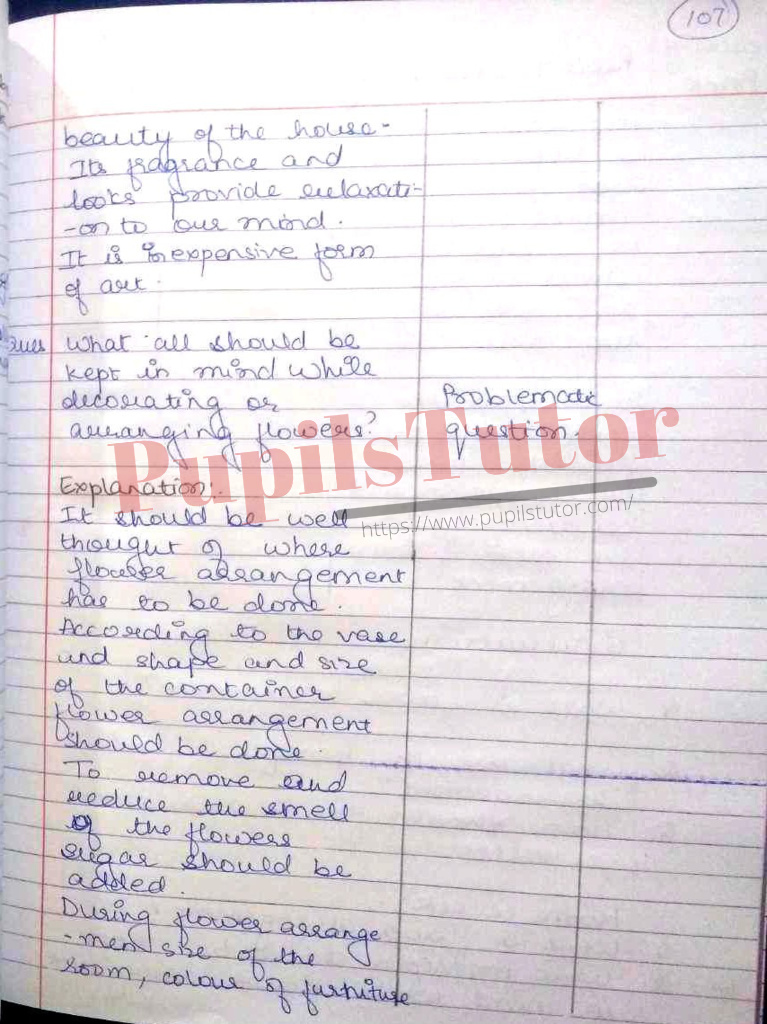 107
beauty of the house-
Its fragrance and
looks provide relaxati-
-on to our mind.
It is inexpensive form
of art.
Ques What all should be
kept in mind while
decorating or
arranging flowers?
Problematic
question.
PupilsTutor
https://www.pupilstutor.com/
Explanation:
It should be well
thought of where
flower arrangement
has to be done.
According to the vase
and shape and size
of the container
flower arrangement
should be done.
To remove and
reduce the smell
of the flowers
sugar should be
added.
During flower arrange
-men size of the
room, colour of furniture